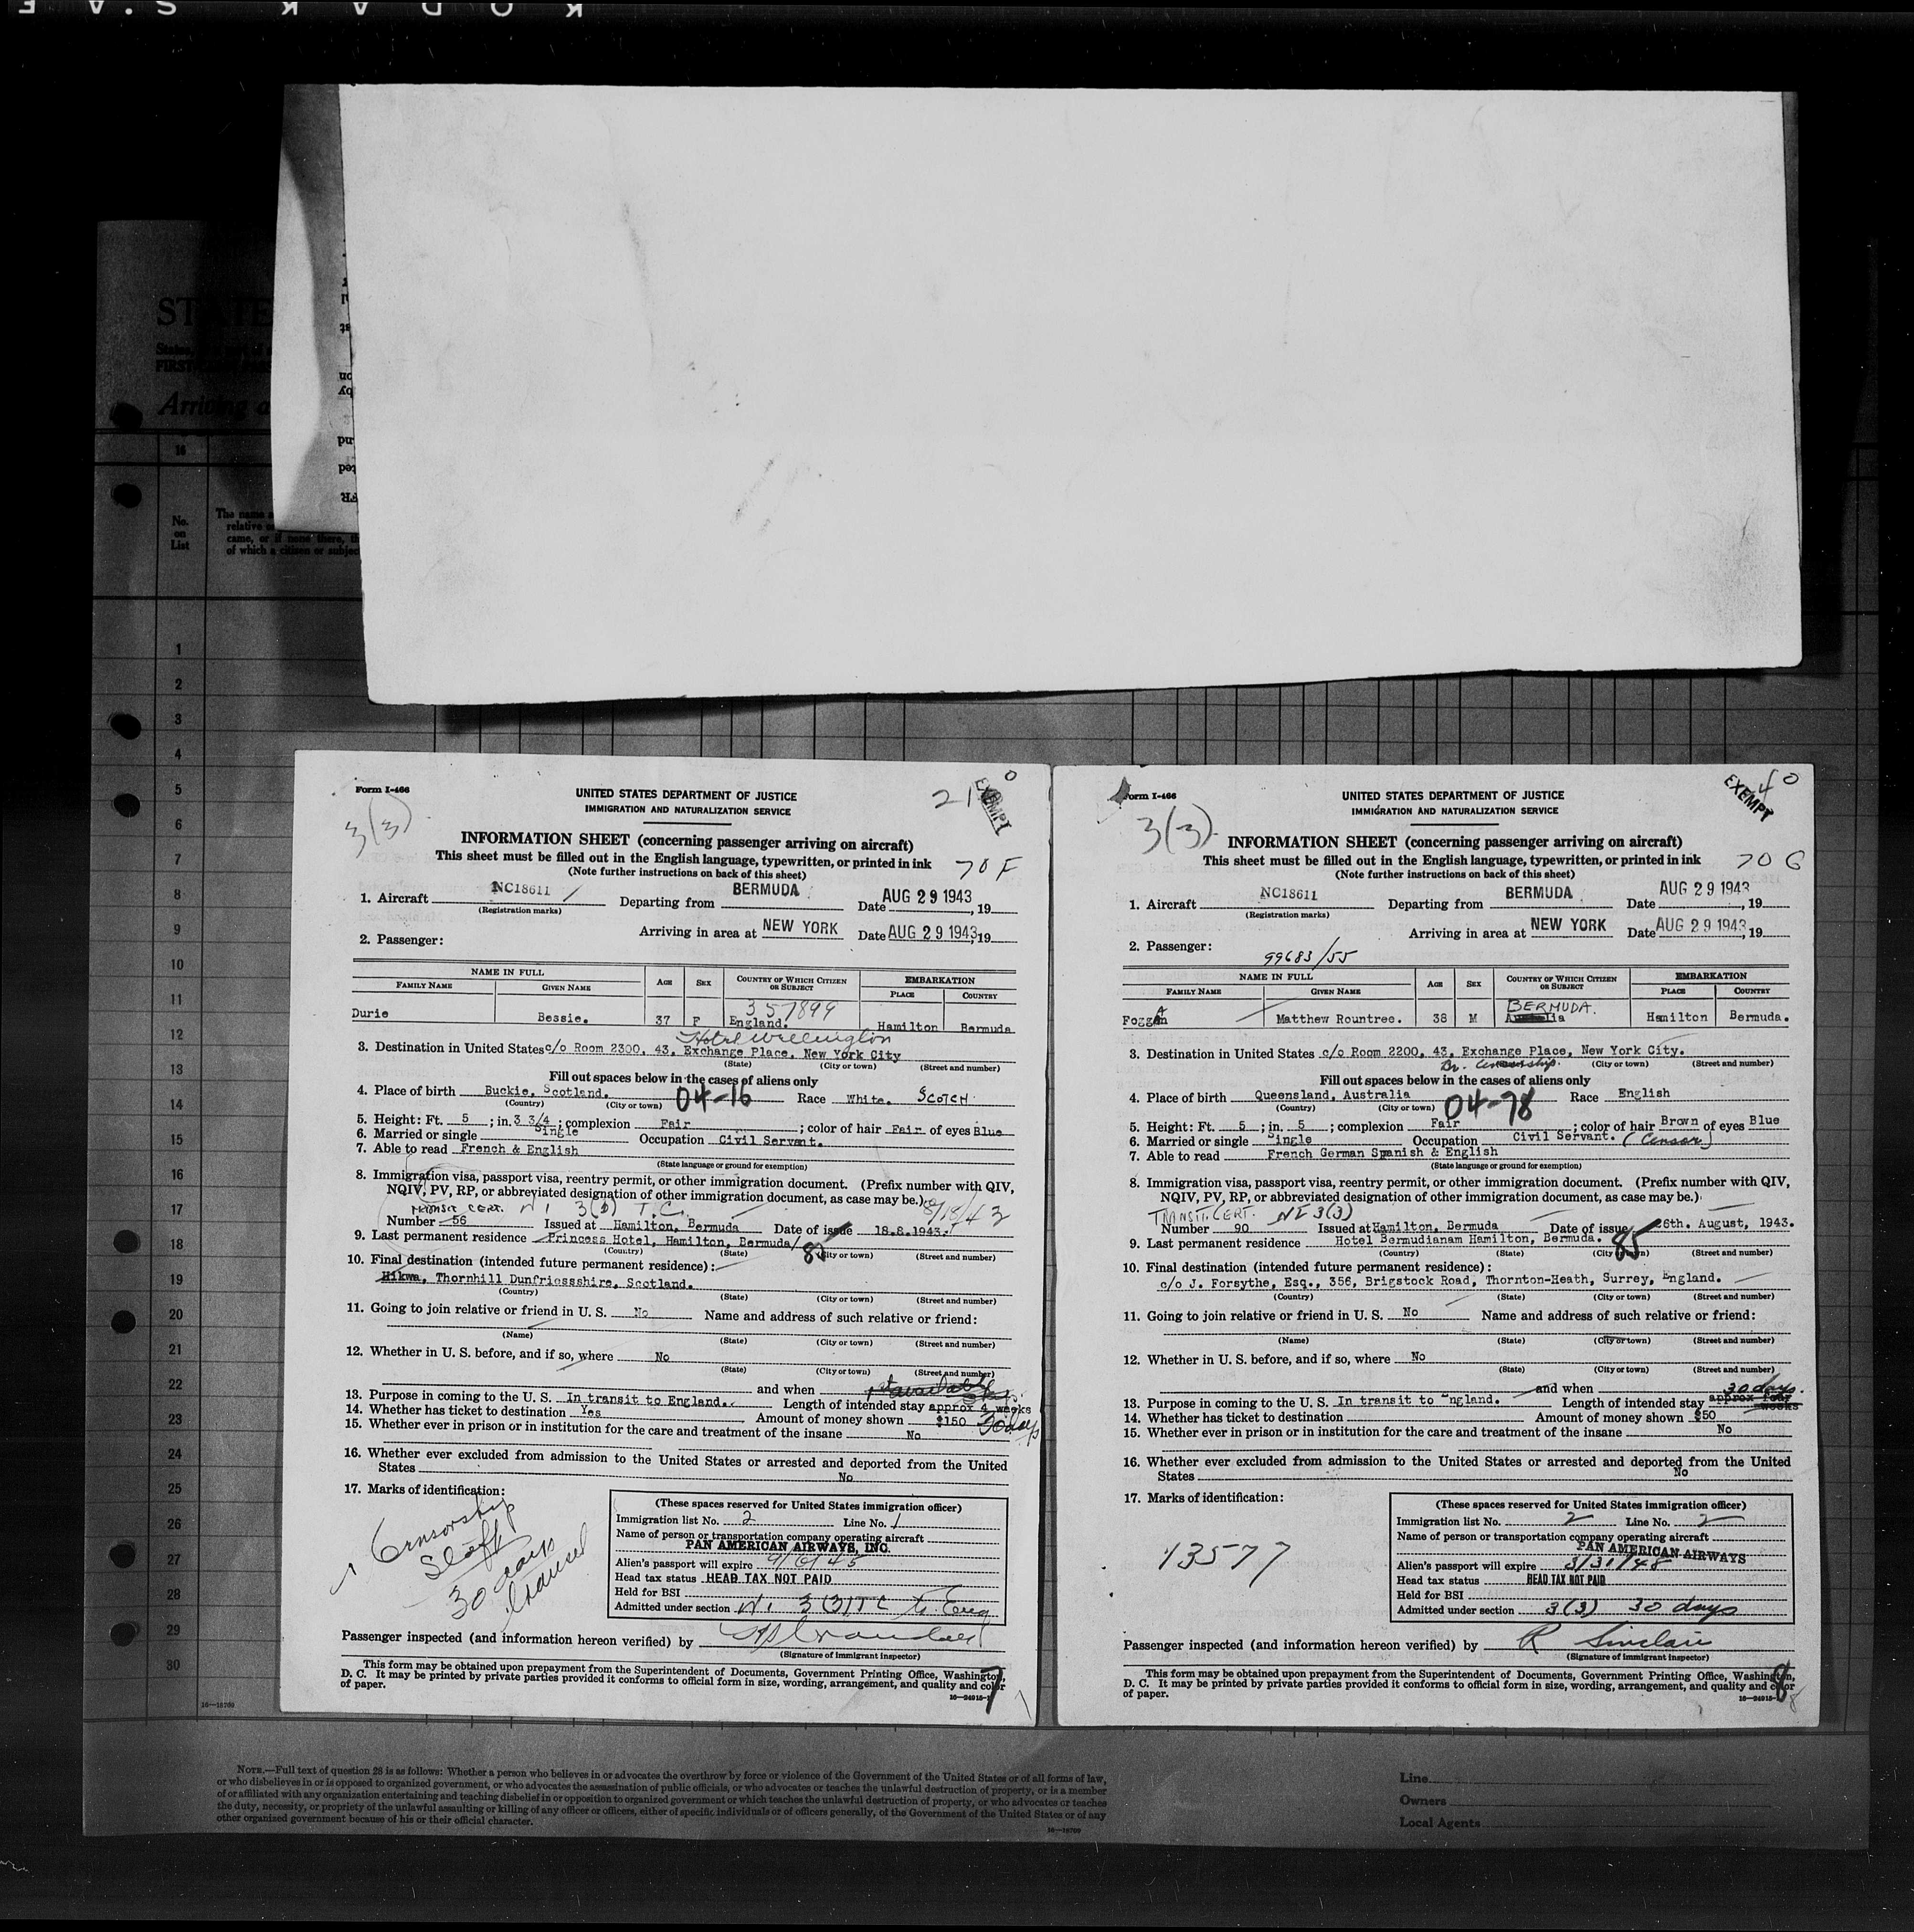 KODAK S.A.F
STATE
States
FIRST
Arriving a
16
No.
on
List
The name a
relative o
came, or if none there, th
of which a citizen or subjec
1
2
3
4
5
6
7
8
9
10
11
12
13
14
15
16
17
18
19
20
21
22
23
24
25
26
27
28
29
30
16—18769
Form I-466
UNITED STATES DEPARTMENT OF JUSTICE
IMMIGRATION AND NATURALIZATION SERVICE
EXEMPT
3(3)
INFORMATION SHEET (concerning passenger arriving on aircraft)
This sheet must be filled out in the English language, typewritten, or printed in ink
70 F
(Note further instructions on back of this sheet)
1. Aircraft NC18611 Departing from BERMUDA Date AUG 29 1943, 19
(Registration marks)
Arriving in area at NEW YORK Date AUG 29 1943, 19
2. Passenger:
NAME IN FULL AGE SEX COUNTRY OF WHICH CITIZEN OR SUBJECT EMBARKATION
FAMILY NAME GIVEN NAME PLACE COUNTRY
357899
Durie Bessie. 37 F England. Hamilton Bermuda.
Hotel Wellington
3. Destination in United States c/o Room 2300, 43, Exchange Place, New York City
(State) (City or town) (Street and number)
Fill out spaces below in the cases of aliens only
4. Place of birth Buckie, Scotland. 04-16 Race White. SCOTCH
(Country) (City or town)
5. Height: Ft. 5; in. 3 3/4; complexion Fair; color of hair Fair of eyes Blue
6. Married or single Single Occupation Civil Servant.
7. Able to read French & English
(State language or ground for exemption)
8. Immigration visa, passport visa, reentry permit, or other immigration document. (Prefix number with QIV,
NQIV, PV, RP, or abbreviated designation of other immigration document, as case may be.)
TRANSIT CERT. NI 3(3) T.C. 8/18/43
Number 56 Issued at Hamilton, Bermuda Date of issue 18.8.1943.
9. Last permanent residence Princess Hotel, Hamilton, Bermuda/
(Country) (State) (City or town) (Street and number)
10. Final destination (intended future permanent residence):
Hikwa, Thornhill Dunfriessshire, Scotland.
(Country) (State) (City or town) (Street and number)
11. Going to join relative or friend in U. S. No Name and address of such relative or friend:
(Name) (State) (City or town) (Street and number)
12. Whether in U. S. before, and if so, where No
(State) (City or town) (Street and number)
and when
13. Purpose in coming to the U. S. In transit to England. Length of intended stay approx 4 weeks
14. Whether has ticket to destination Yes Amount of money shown $150 30 days
15. Whether ever in prison or in institution for the care and treatment of the insane No
16. Whether ever excluded from admission to the United States or arrested and deported from the United
States No
17. Marks of identification:
Censorship
Staff
30 days
(These spaces reserved for United States immigration officer)
Immigration list No. 2 Line No. 1
Name of person or transportation company operating aircraft
PAN AMERICAN AIRWAYS, INC.
Alien's passport will expire 9/6/45
Head tax status HEAD TAX NOT PAID
Held for BSI
Admitted under section NI 3(3) TC to Eng
Passenger inspected (and information hereon verified) by
(Signature of immigrant inspector)
This form may be obtained upon prepayment from the Superintendent of Documents, Government Printing Office, Washington,
D. C. It may be printed by private parties provided it conforms to official form in size, wording, arrangement, and quality and color
of paper.
7
Form I-466
UNITED STATES DEPARTMENT OF JUSTICE
IMMIGRATION AND NATURALIZATION SERVICE
EXEMPT
3(3)
INFORMATION SHEET (concerning passenger arriving on aircraft)
This sheet must be filled out in the English language, typewritten, or printed in ink
70 G
(Note further instructions on back of this sheet)
1. Aircraft NC18611 Departing from BERMUDA Date AUG 29 1943, 19
(Registration marks)
Arriving in area at NEW YORK Date AUG 29 1943, 19
2. Passenger:
99683/55
NAME IN FULL AGE SEX COUNTRY OF WHICH CITIZEN OR SUBJECT EMBARKATION
FAMILY NAME GIVEN NAME PLACE COUNTRY
BERMUDA
Foggan Matthew Rountree. 38 M Australia Hamilton Bermuda.
3. Destination in United States c/o Room 2200, 43, Exchange Place, New York City.
Br. Censorship. (City or town) (Street and number)
Fill out spaces below in the cases of aliens only
4. Place of birth Queensland, Australia 04-78 Race English
(Country) (City or town)
5. Height: Ft. 5; in. 5; complexion Fair; color of hair Brown of eyes Blue
6. Married or single Single Occupation Civil Servant. (Censor)
7. Able to read French German Spanish & English
(State language or ground for exemption)
8. Immigration visa, passport visa, reentry permit, or other immigration document. (Prefix number with QIV,
NQIV, PV, RP, or abbreviated designation of other immigration document, as case may be.)
TRANSIT. CERT. NI 3(3)
Number 90 Issued at Hamilton, Bermuda Date of issue 26th. August, 1943.
9. Last permanent residence Hotel Bermudianam Hamilton, Bermuda. 85
(Country) (State) (City or town) (Street and number)
10. Final destination (intended future permanent residence):
c/o J. Forsythe, Esq., 356, Brigstock Road, Thornton-Heath, Surrey, England.
(Country) (State) (City or town) (Street and number)
11. Going to join relative or friend in U. S. No Name and address of such relative or friend:
(Name) (State) (City or town) (Street and number)
12. Whether in U. S. before, and if so, where No
(State) (City or town) (Street and number)
and when 30 days.
13. Purpose in coming to the U. S. In transit to England. Length of intended stay approx four weeks
14. Whether has ticket to destination Amount of money shown $50
15. Whether ever in prison or in institution for the care and treatment of the insane No
16. Whether ever excluded from admission to the United States or arrested and deported from the United
States No
17. Marks of identification:
13577
(These spaces reserved for United States immigration officer)
Immigration list No. 2 Line No. 2
Name of person or transportation company operating aircraft
PAN AMERICAN AIRWAYS
Alien's passport will expire 3/31/48
Head tax status HEAD TAX NOT PAID
Held for BSI
Admitted under section 3(3) 30 days
Passenger inspected (and information hereon verified) by R Sinclair
(Signature of immigrant inspector)
This form may be obtained upon prepayment from the Superintendent of Documents, Government Printing Office, Washington,
D. C. It may be printed by private parties provided it conforms to official form in size, wording, arrangement, and quality and color
of paper.
8
NOTE.—Full text of question 28 is as follows: Whether a person who believes in or advocates the overthrow by force or violence of the Government of the United States or of all forms of law,
or who disbelieves in or is opposed to organized government, or who advocates the assassination of public officials, or who advocates or teaches the unlawful destruction of property, or is a member
of or affiliated with any organization entertaining and teaching disbelief in or opposition to organized government or which teaches the unlawful destruction of property, or who advocates or teaches
the duty, necessity, or propriety of the unlawful assaulting or killing of any officer or officers, either of specific individuals or of officers generally, of the Government of the United States or of any
other organized government because of his or their official character.
16—18769
Line
Owners
Local Agents